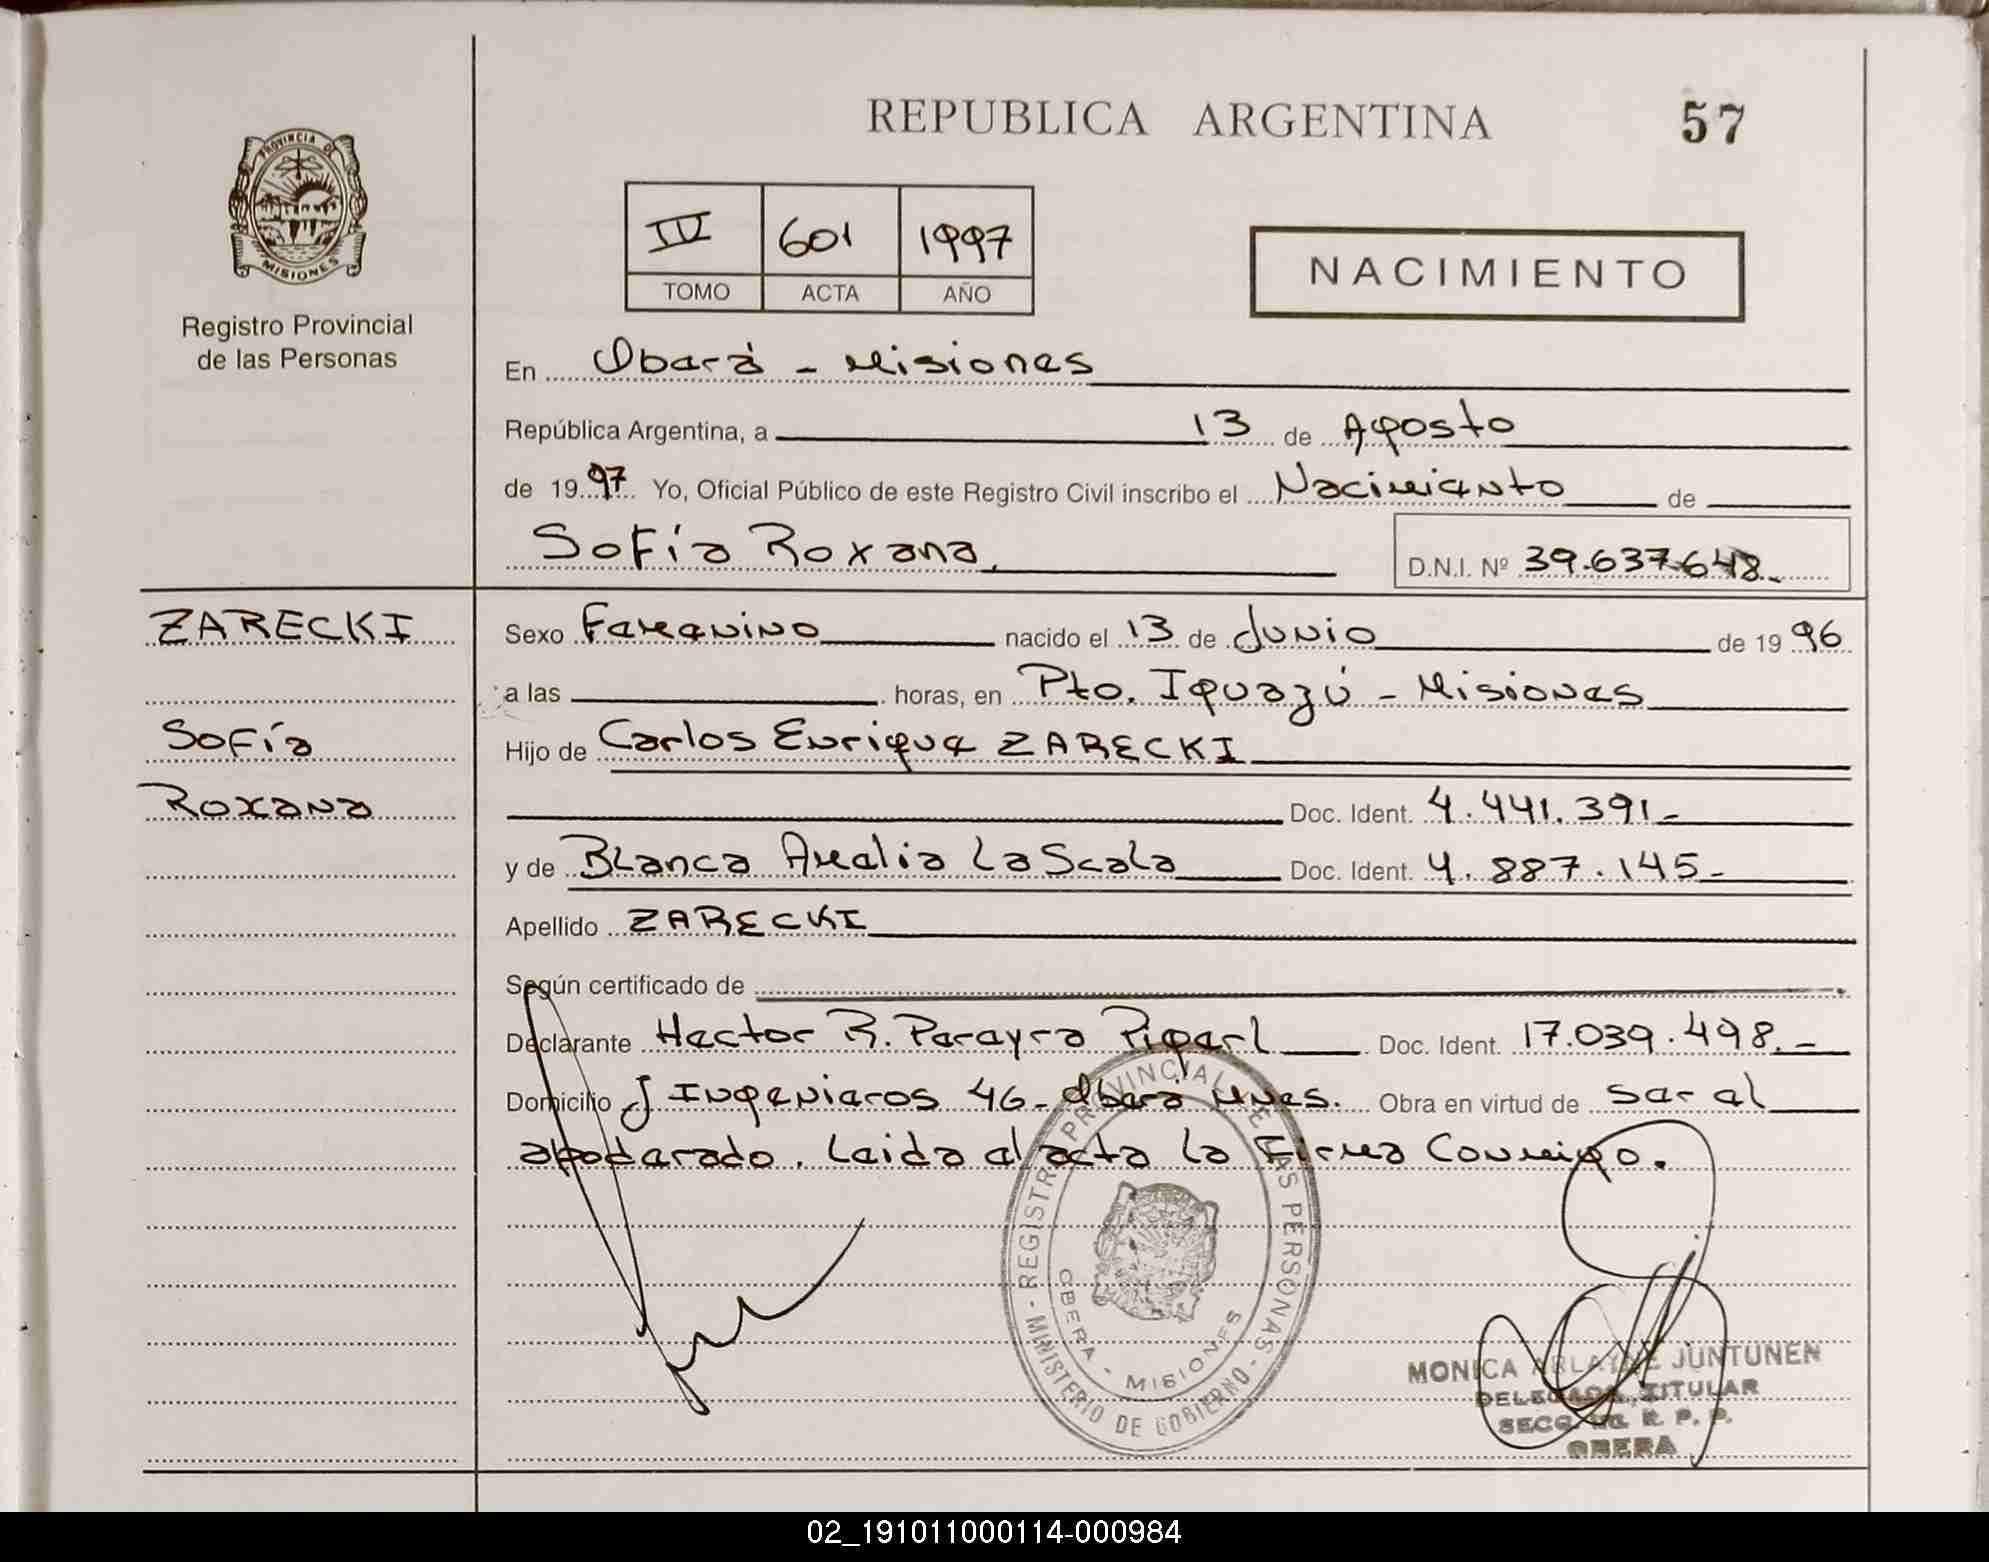 REPUBLICA ARGENTINA
57
PROVINCIA DE
MISIONES
Registro Provincial
de las Personas
IV 601 1997
TOMO ACTA AÑO
NACIMIENTO
En Oberá - Misiones
República Argentina, a 13 de Agosto
de 1997 Yo, Oficial Público de este Registro Civil inscribo el Nacimiento de
Sofía Roxana, D.N.I. Nº 39.637.648.-
ZARECKI
Sofía
Roxana
Sexo Femenino nacido el 13 de Junio de 1996
a las horas, en Pto. Iguazú - Misiones
Hijo de Carlos Enrique ZARECKI
Doc. Ident. 4.441.391.-
y de Blanca Amalia La Scala Doc. Ident. 4.887.145.-
Apellido ZARECKI
Según certificado de
Declarante Hector R. Pereyra Doc. Ident. 17.039.498.-
Domicilio J Ingenieros 46- Oberá Mnes. Obra en virtud de ser el
apoderado. Leida el acta la Firma Conmigo.
REGISTRO PROVINCIAL DE LAS PERSONAS - MINISTERIO DE GOBIERNO -
OBERA - MISIONES
MONICA JUNTUNEN
TITULAR
R. P. P.
OBERA
02_191011000114-000984